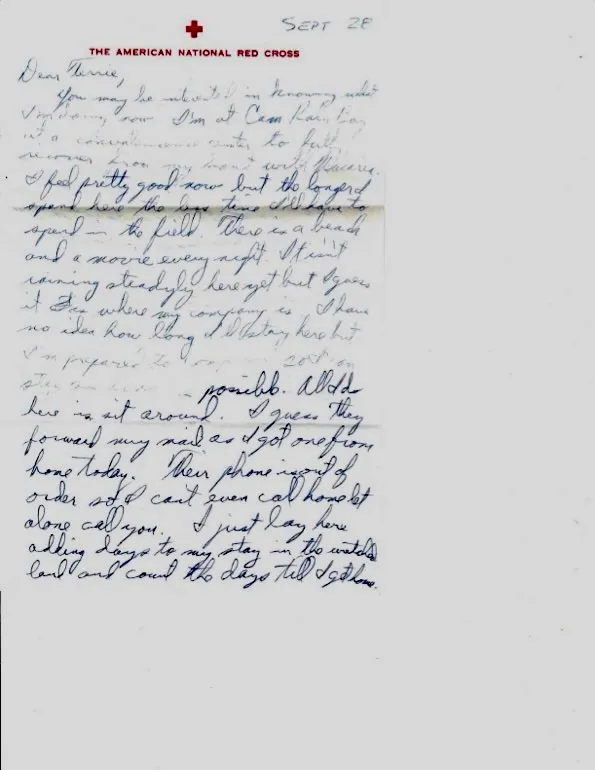 SEPT 28
THE AMERICAN NATIONAL RED CROSS
Dear Terrie,
You may be interested in knowing what
I'm doing now I'm at Cam Rain Bay
at a convalescence center to fully
recover from my bout with Malaria.
I feel pretty good now but the longer I
spend here the less time I'll have to
spend in the field. There is a beach
and a movie every night. It isn't
raining steadyly here yet but I guess
it is where my company is. I have
no idea how long I'll stay here but
I'm prepared to
possible. All I do
here is sit around. I guess they
forward my mail as I got one from
home today. Their phone is out of
order so I can't even call home let
alone call you. I just lay here
adding days to my stay in the
land and count the days till I get home.